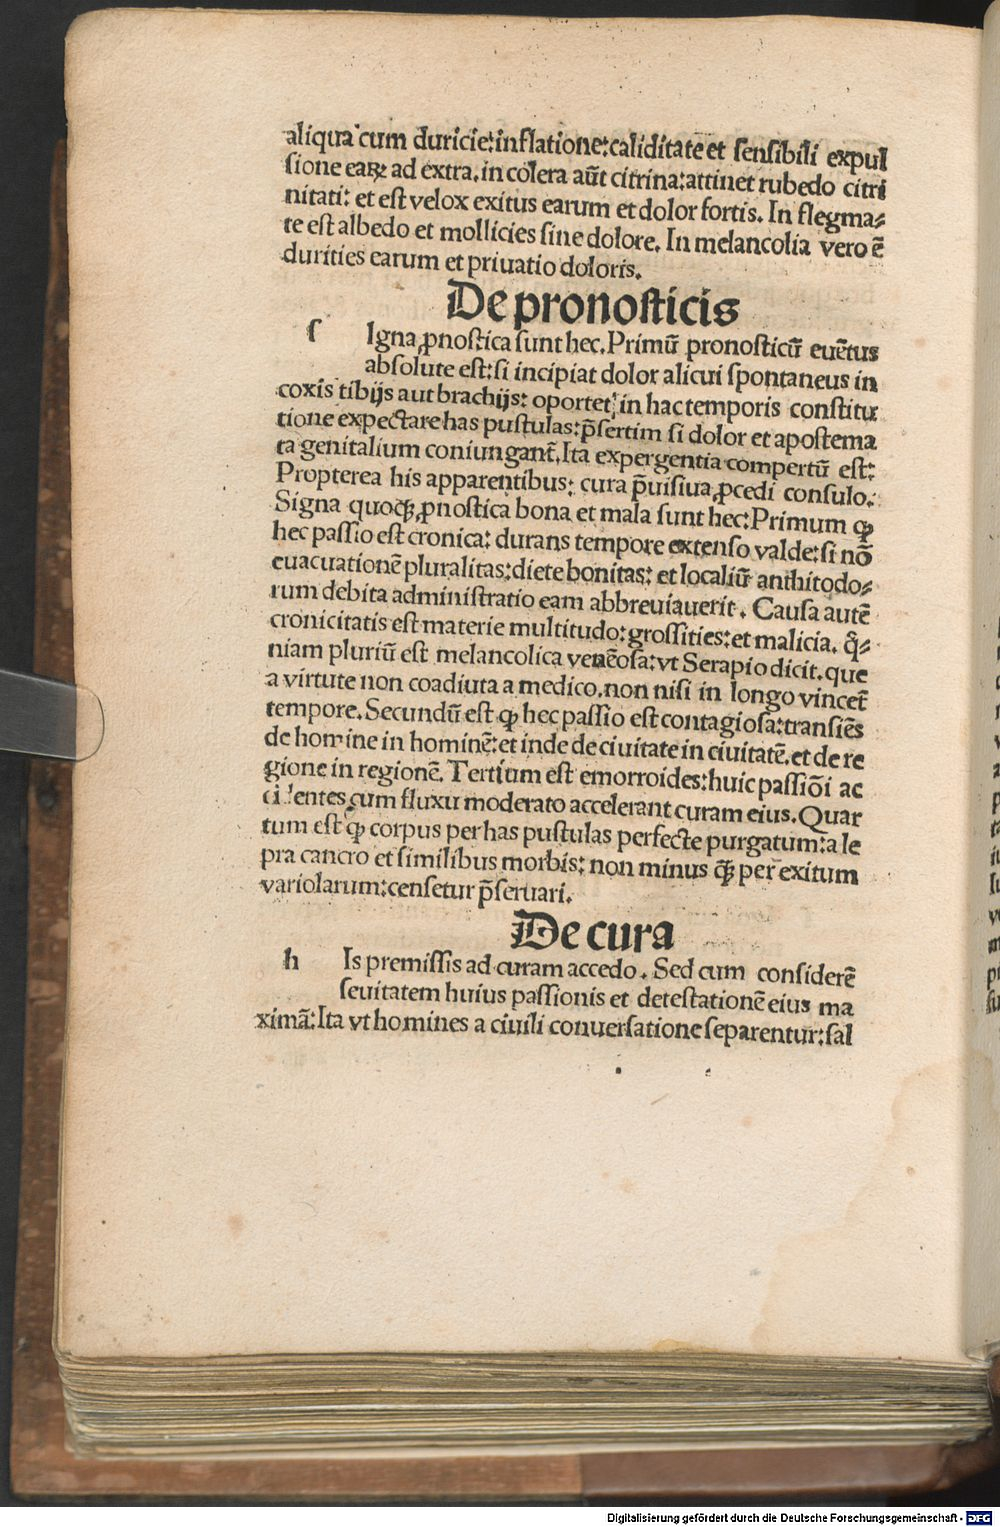 aliqua cum duricie:inflatione:caliditate et sensibili expul
sione earꝝ ad extra. in colera aūt citrina:attinet rubedo citri
nitati: et est velox exitus earum et dolor fortis. In flegma⸗
te est albedo et mollicies sine dolore. In melancolia vero ē
durities earum et priuatio doloris.
De pronosticis
ſ Igna ꝓnostica sunt hec. Primū pronosticū euētus
absolute est:si incipiat dolor alicui spontaneus in
coxis tibijs aut brachijs: oportet in hac temporis constitu
tione expectare has pustulas:p̄sertim si dolor et apostema
ta genitalium coniungant̄. Ita expergentia compertū est:
Propterea his apparentibus: cura p̄uisiua ꝓcedi consulo.
Signa quoqꝫ ꝓnostica bona et mala sunt hec: Primum ꝙ
hec passio est cronica: durans tempore extenso valde: si nō
euacuationē pluralitas: diete bonitas: et localiū anthitodo⸗
rum debita administratio eam abbreuiauerit. Causa autē
cronicitatis est materie multitudo: grossities: et malicia. q̄⸗
niam pluriū est melancolica venēosa: vt Serapio dicit. que
a virtute non coadiuta a medico. non nisi in longo vincet̄
tempore. Secundū est ꝙ hec passio est contagiosa: transiēs
de homine in hominē: et inde de ciuitate in ciuitatē. et de re
gione in regionē. Tertium est emorroides: huic passiōi ac
cidentes cum fluxu moderato accelerant curam eius. Quar
tum est ꝙ corpus per has pustulas perfecte purgatum: a le
pra cancro et similibus morbis: non minus qꝫ̄ per exitum
variolarum: censetur p̄seruari.
De cura
h Is premissis ad curam accedo. Sed cum considerē
seuitatem huius passionis et detestationē eius ma
ximā: Ita vt homines a ciuili conuersatione separentur: sal
Digitalisierung gefördert durch die Deutsche Forschungsgemeinschaft - DFG